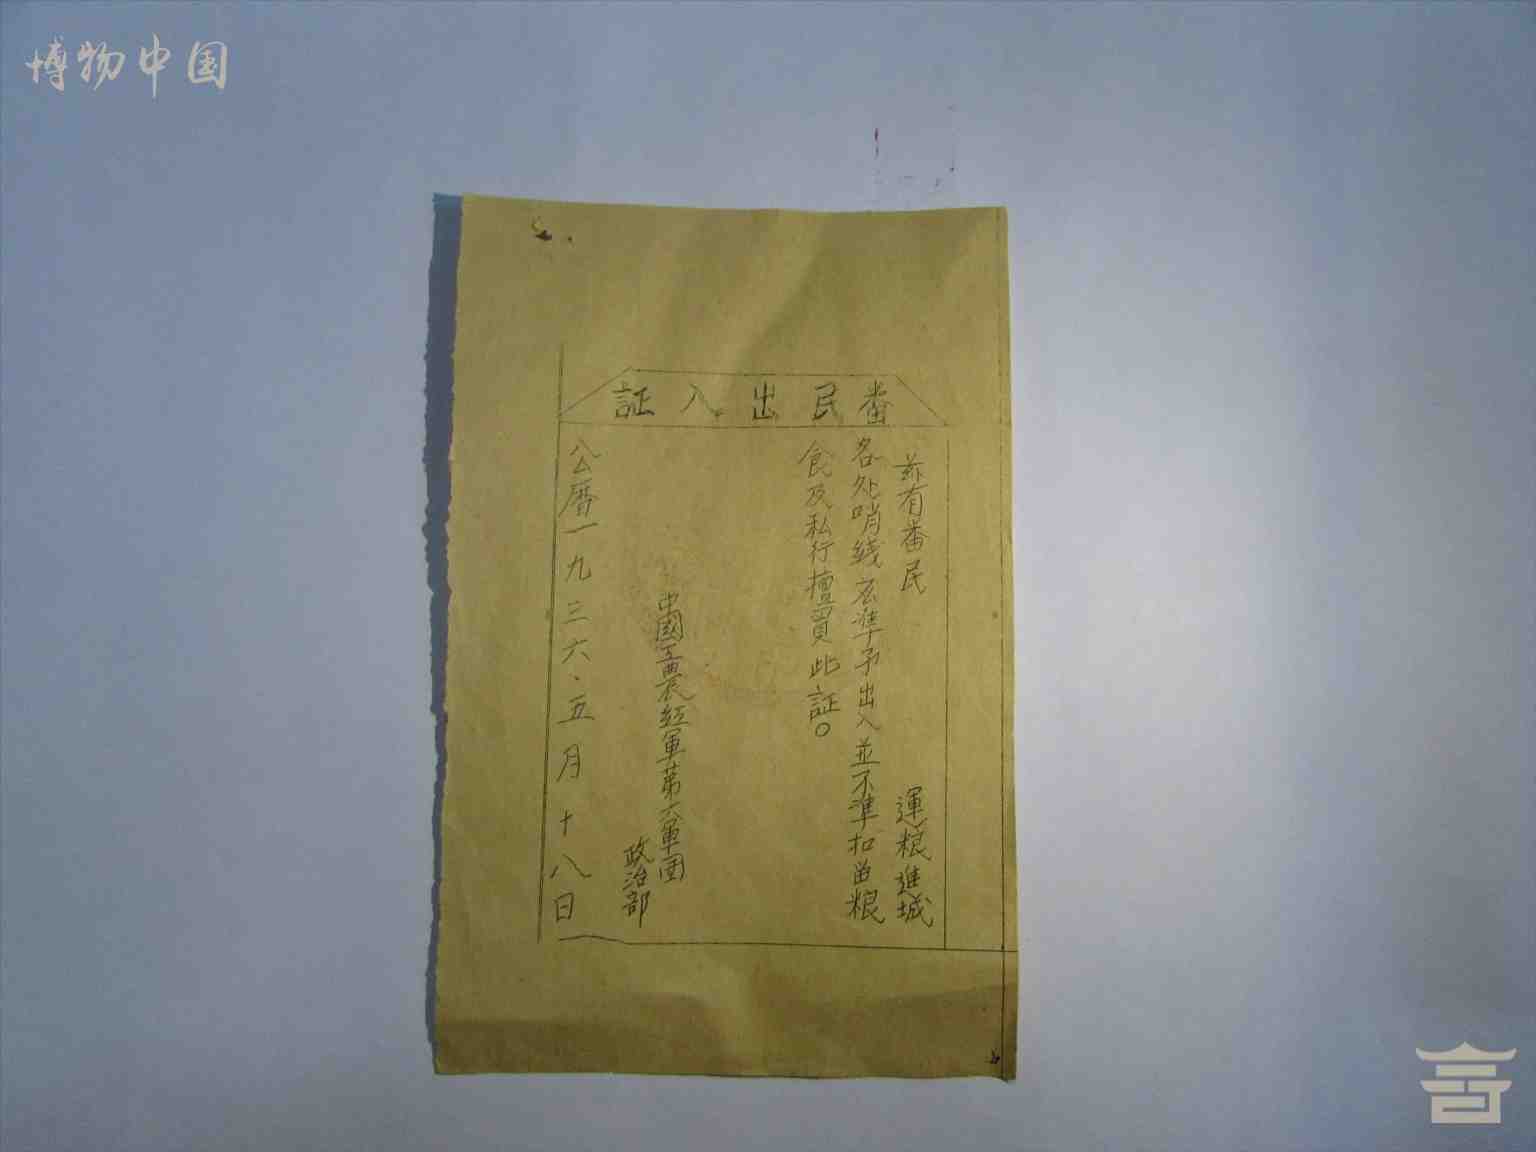 博物中国
番民出入証
兹有番民 運粮進城
各处哨綫応準予出入並不準扣留粮
食及私行擅買此証。
中國工農紅軍第六軍团
政治部
公曆一九三六、五月十八日